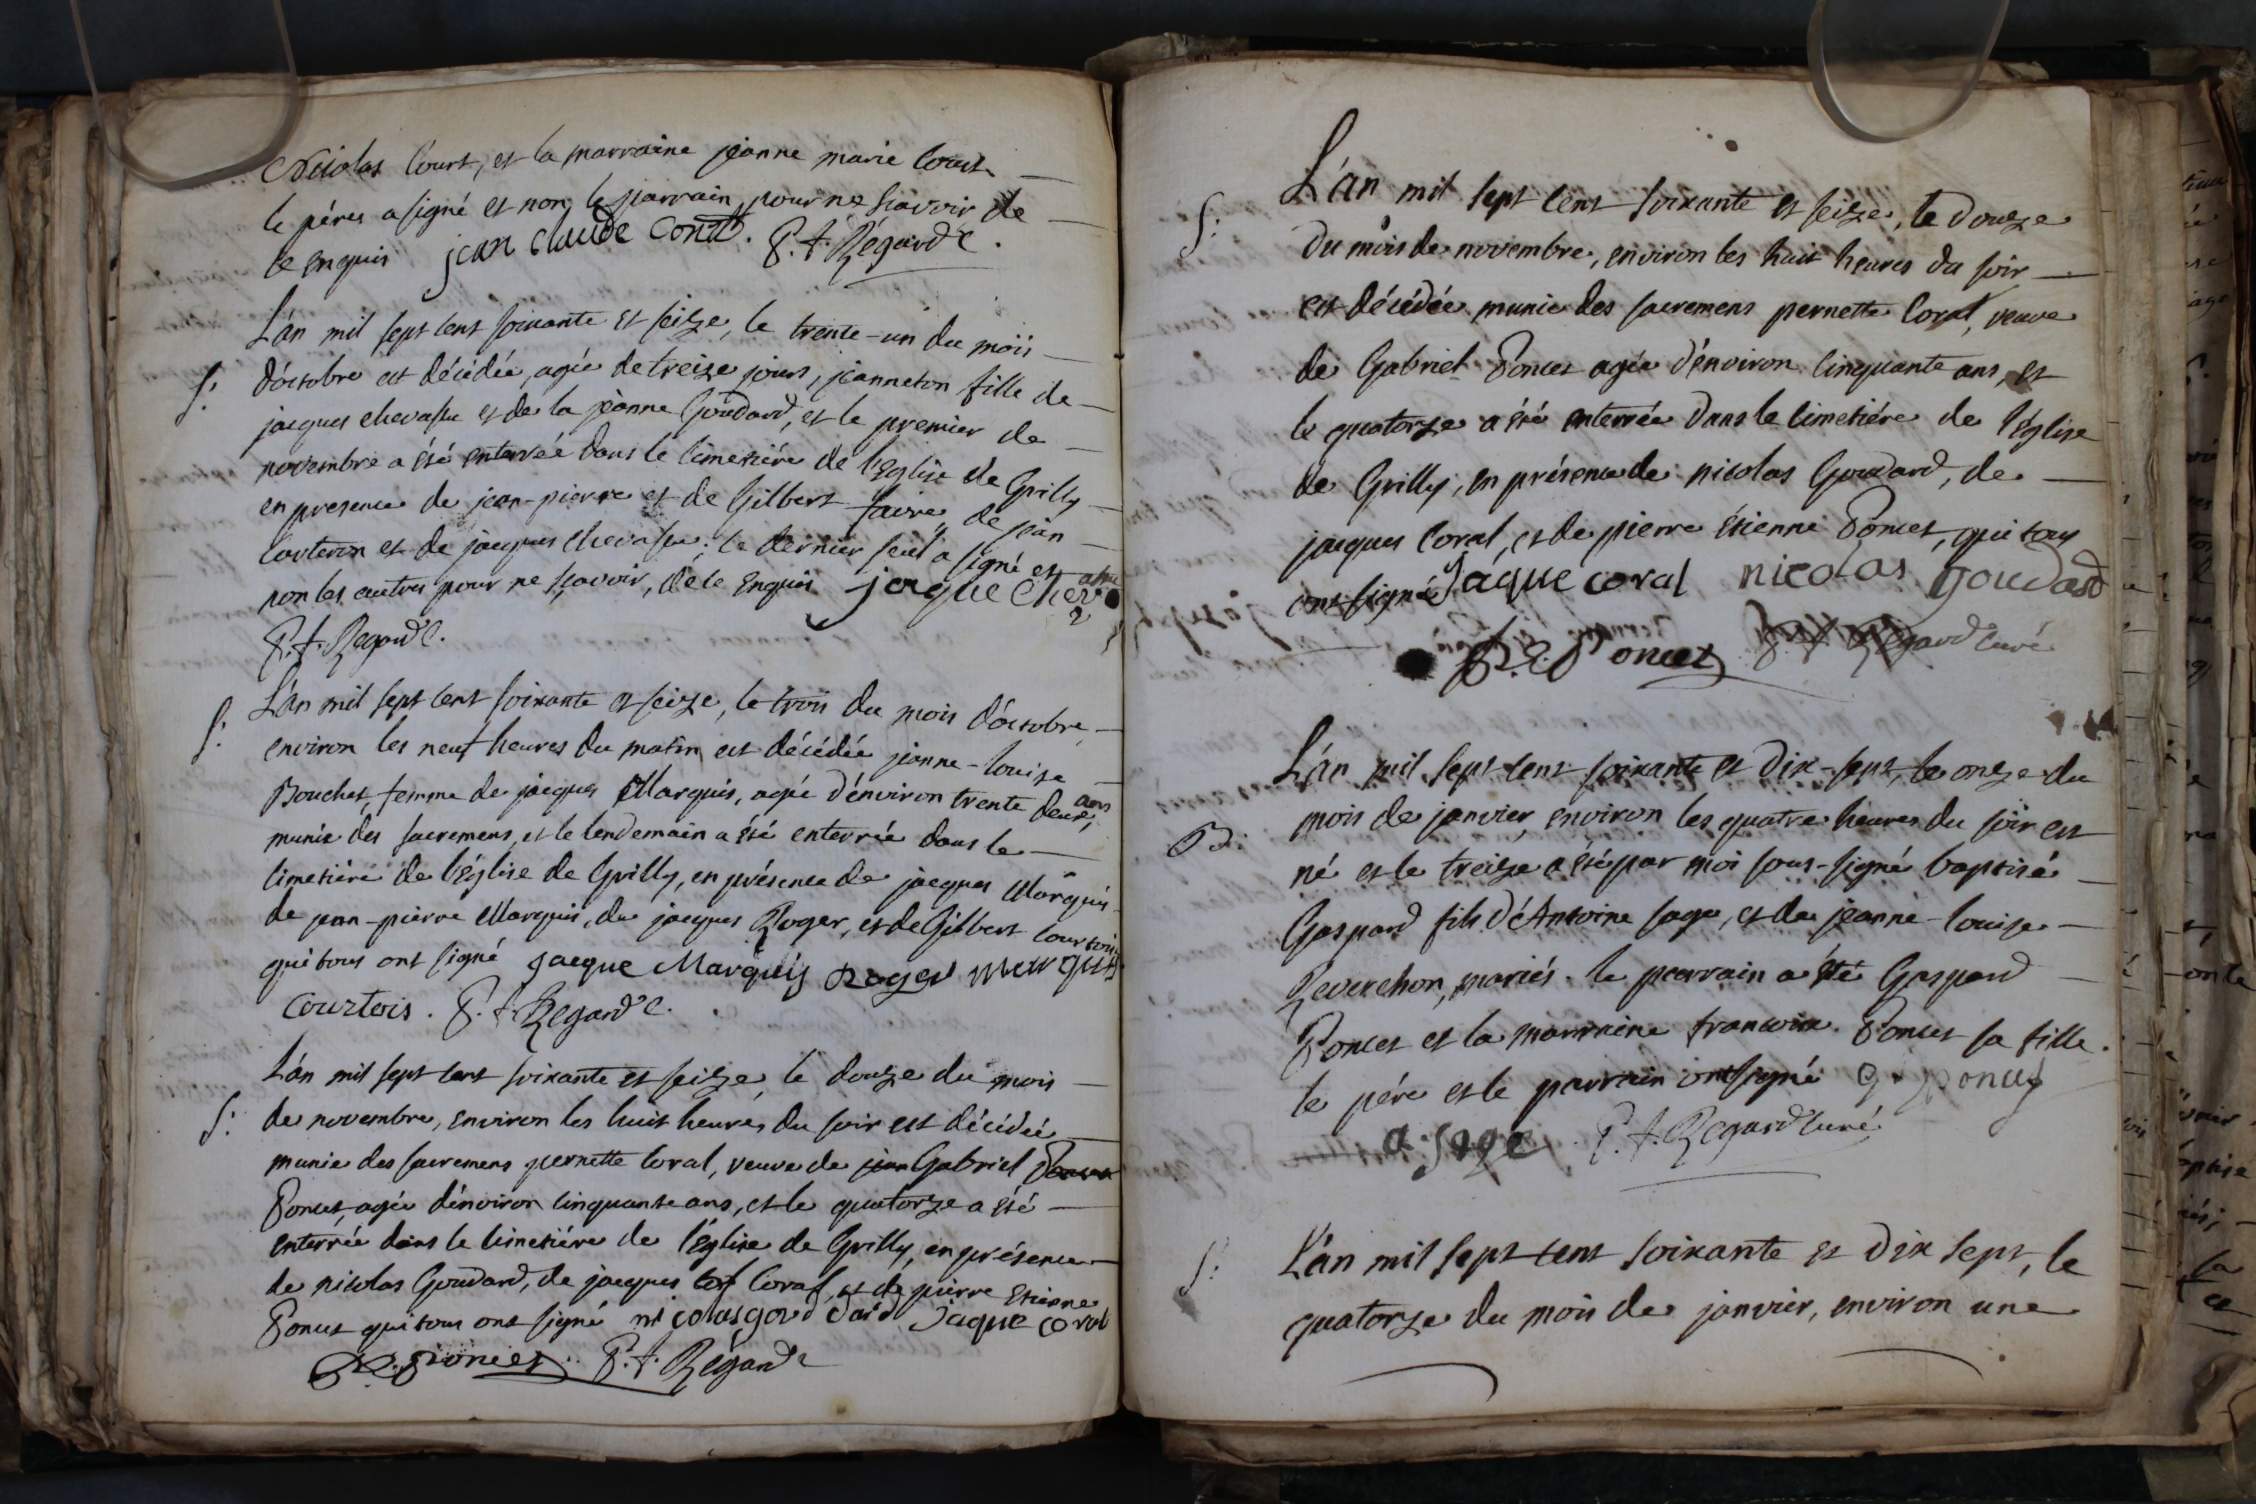 Nicolas Court, et la marraine jeanne marie Court
le pére a signé et non le parrain pour ne sçavoir de
ce enquis jean claude Court. P. f. Regard C.
L'an mil sept cent soixante et seize, le trente-un du mois
S. d'octobre est décédée, agée de treize jours, jeanneton fille de
jaques chevassu et de la jeanne Goudard, et le premier de
novembre a été enterrée dans le cimetiére de l'Eglise de Grilly
en presence de jean-pierre et de Gilbert faivre, de jean
et de jacques Chevassu; le dernier seul a signé et
non les autres pour ne sçavoir, de ce enquis jaque Chevassu
P. f. Regard C.
L'an mil sept cent soixante et seize, le trois du mois d'octobre,
S. environ les neuf heures du matin est décédée jeanne-louise
Bouchet, femme de jacques Marquis, agée d'énviron trente deux ans,
munie des sacremens, et le lendemain a été enterrée dans le
cimetiére de l'église de Grilly, en présence de jacques Marquis
de jean-pierre Marquis, de jacques Roger, et de Gilbert Courtois
qui tous ont signé jacque Marquis Roger marquis
Courtois. P. f. Regard C.
L'an mil sept cent soixante et seize le douze du mois
S: de novembre, environ les huit heures du soir est décédée
munie des sacremens pernette Coral, veuve de jean Gabriel
Poncet, agée d'énviron cinquante ans, et le quatorze a été
enterrée dans le cimetiére de l'église de Grilly, en présence
de nicolas Goudard, de jacques Coral, et de pierre Etienne
Poncet qui tous ont signé nicolas goudard Jaque coral
P. E. Poncet P. f. Regard C
L'an mil sept cent soixante et seize, le douze
S: du mois de novembre, environ les huit heures du soir
est décédée munie des sacremens pernette Coral, veuve
de Gabriel Poncet agée d'énviron cinquante ans, et
le quatorze a été enterrée dans le cimetiére de l'église
de Grilly, en présence de nicolas Goudard, de
jacques Coral, et de pierre étienne Poncet, qui tous
ont signé Jaque coral nicolas goudard
P. E. Poncet P. f. Regard curé
L'an mil sept cent soixante et dix-sept, le onze du
B: mois de janvier, environ les quatre heures du soir est
né et le treize a été par moi sous-signé baptisé
Gaspard fils d'Antoine sage, et de jeanne-louise
Reverchon, mariés. le parrain a été Gaspard
Poncet et la marraine francoise Poncet sa fille.
le pére et le parrain ont signé g. poncet
a sage P. f. Regard curé
S: L'an mil sept cent soixante et dix sept, le
quatorze du mois de janvier, environ une